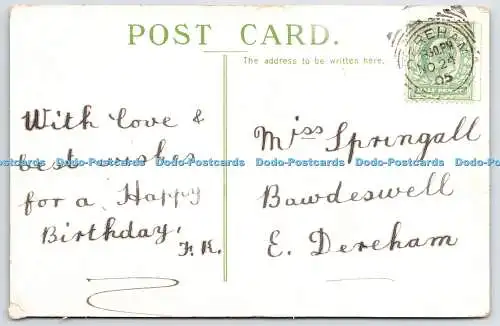 POST CARD.
The address to be written here.
DEREHAM
.30 PM
NO 24
05
HALFPENNY
With love &
best wishes
for a Happy
Birthday,
F. K.
Miss Springall
Bawdeswell
E. Dereham
Dodo-Postcards Dodo-Postcards Dodo-Postcards Dodo-Postcards Dodo-Postcards Dodo-Postcards